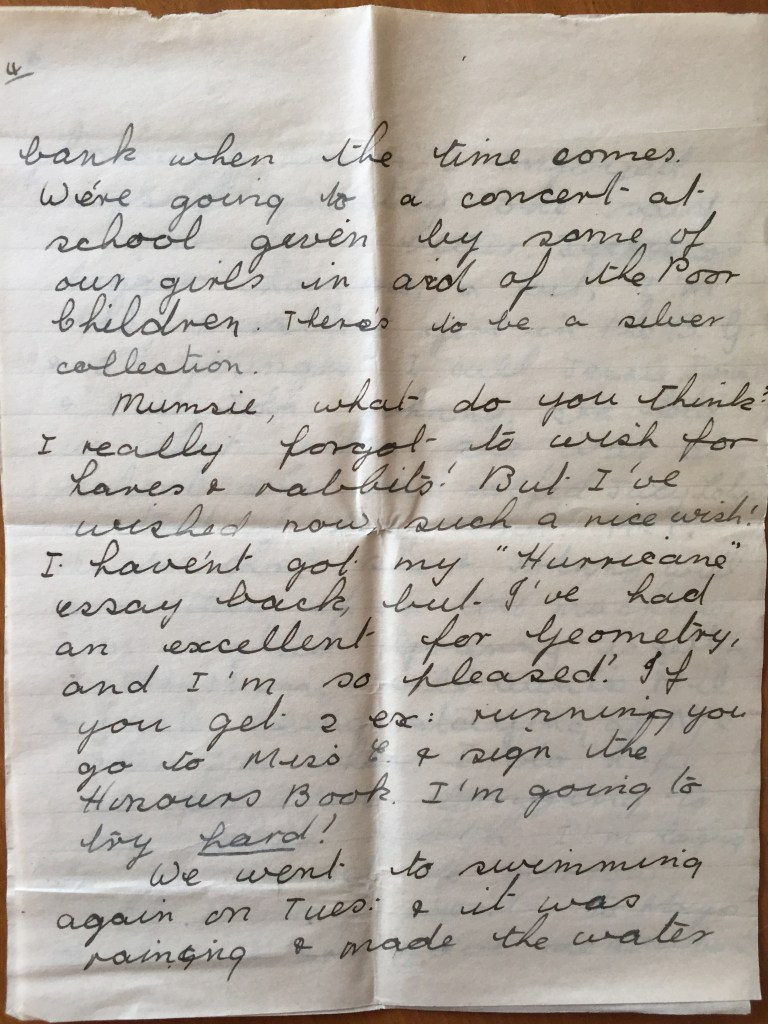 4
bank when the time comes.
We're going to a concert at
school given by some of
our girls in aid of the Poor
Children. There's to be a silver
collection.
Mumsie, what do you think?
I really forgot to wish for
hares & rabbits! But I've
wished now, such a nice wish!
I haven't got my "Hurricane"
essay back, but I've had
an excellent for Geometry,
and I'm so pleased! If
you get 2 ex: running you
go to Miss E. & sign the
Honours Book. I'm going to
try hard!
We went to swimming
again on Tues: & it was
raining & made the water